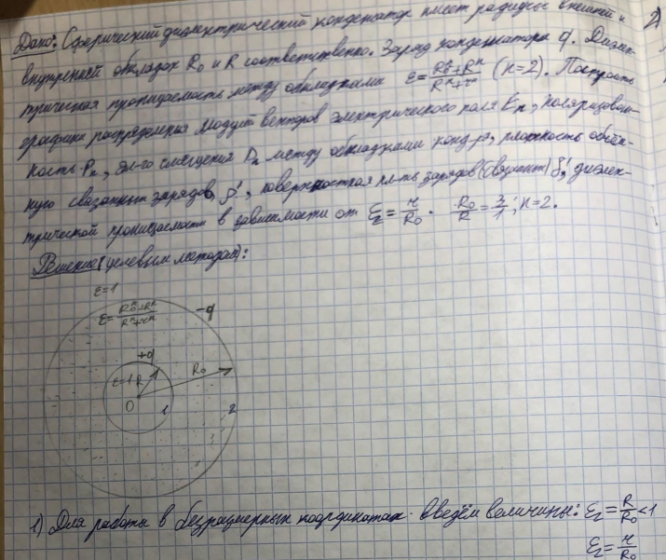 Дано: Сферический диэлектрический конденсатор имеет радиусы внешней и 2)
внутренней обкладок R₀ и R соответственно. Заряд конденсатора q. Диэлек-
трическая проницаемость между обкладками ε = (R₀ⁿ+Rⁿ)/(Rⁿ+rⁿ) (n=2). Построить
графики распределения модулей векторов электрического поля Eₙ, поляризован-
ность Pₙ, эл-го смещения Dₙ между обкладками конд-ра, плотность объём-
ную связанных зарядов ρ', поверхностная пл-ть зарядов (связант) δ', диэлек-
трической проницаемости в зависимости от ξ₂ = r/R₀. R₀/R = 3/1; n=2.
Решение
ε=1
ε = (R₀ⁿ+Rⁿ)/(Rⁿ+rⁿ)
-q
+q
ε=1 R R₀
O 1 2
1) Для работы в безразмерных координатах введём величины: ξ₂ = R/R₀ <1
ξ₂ = r/R₀